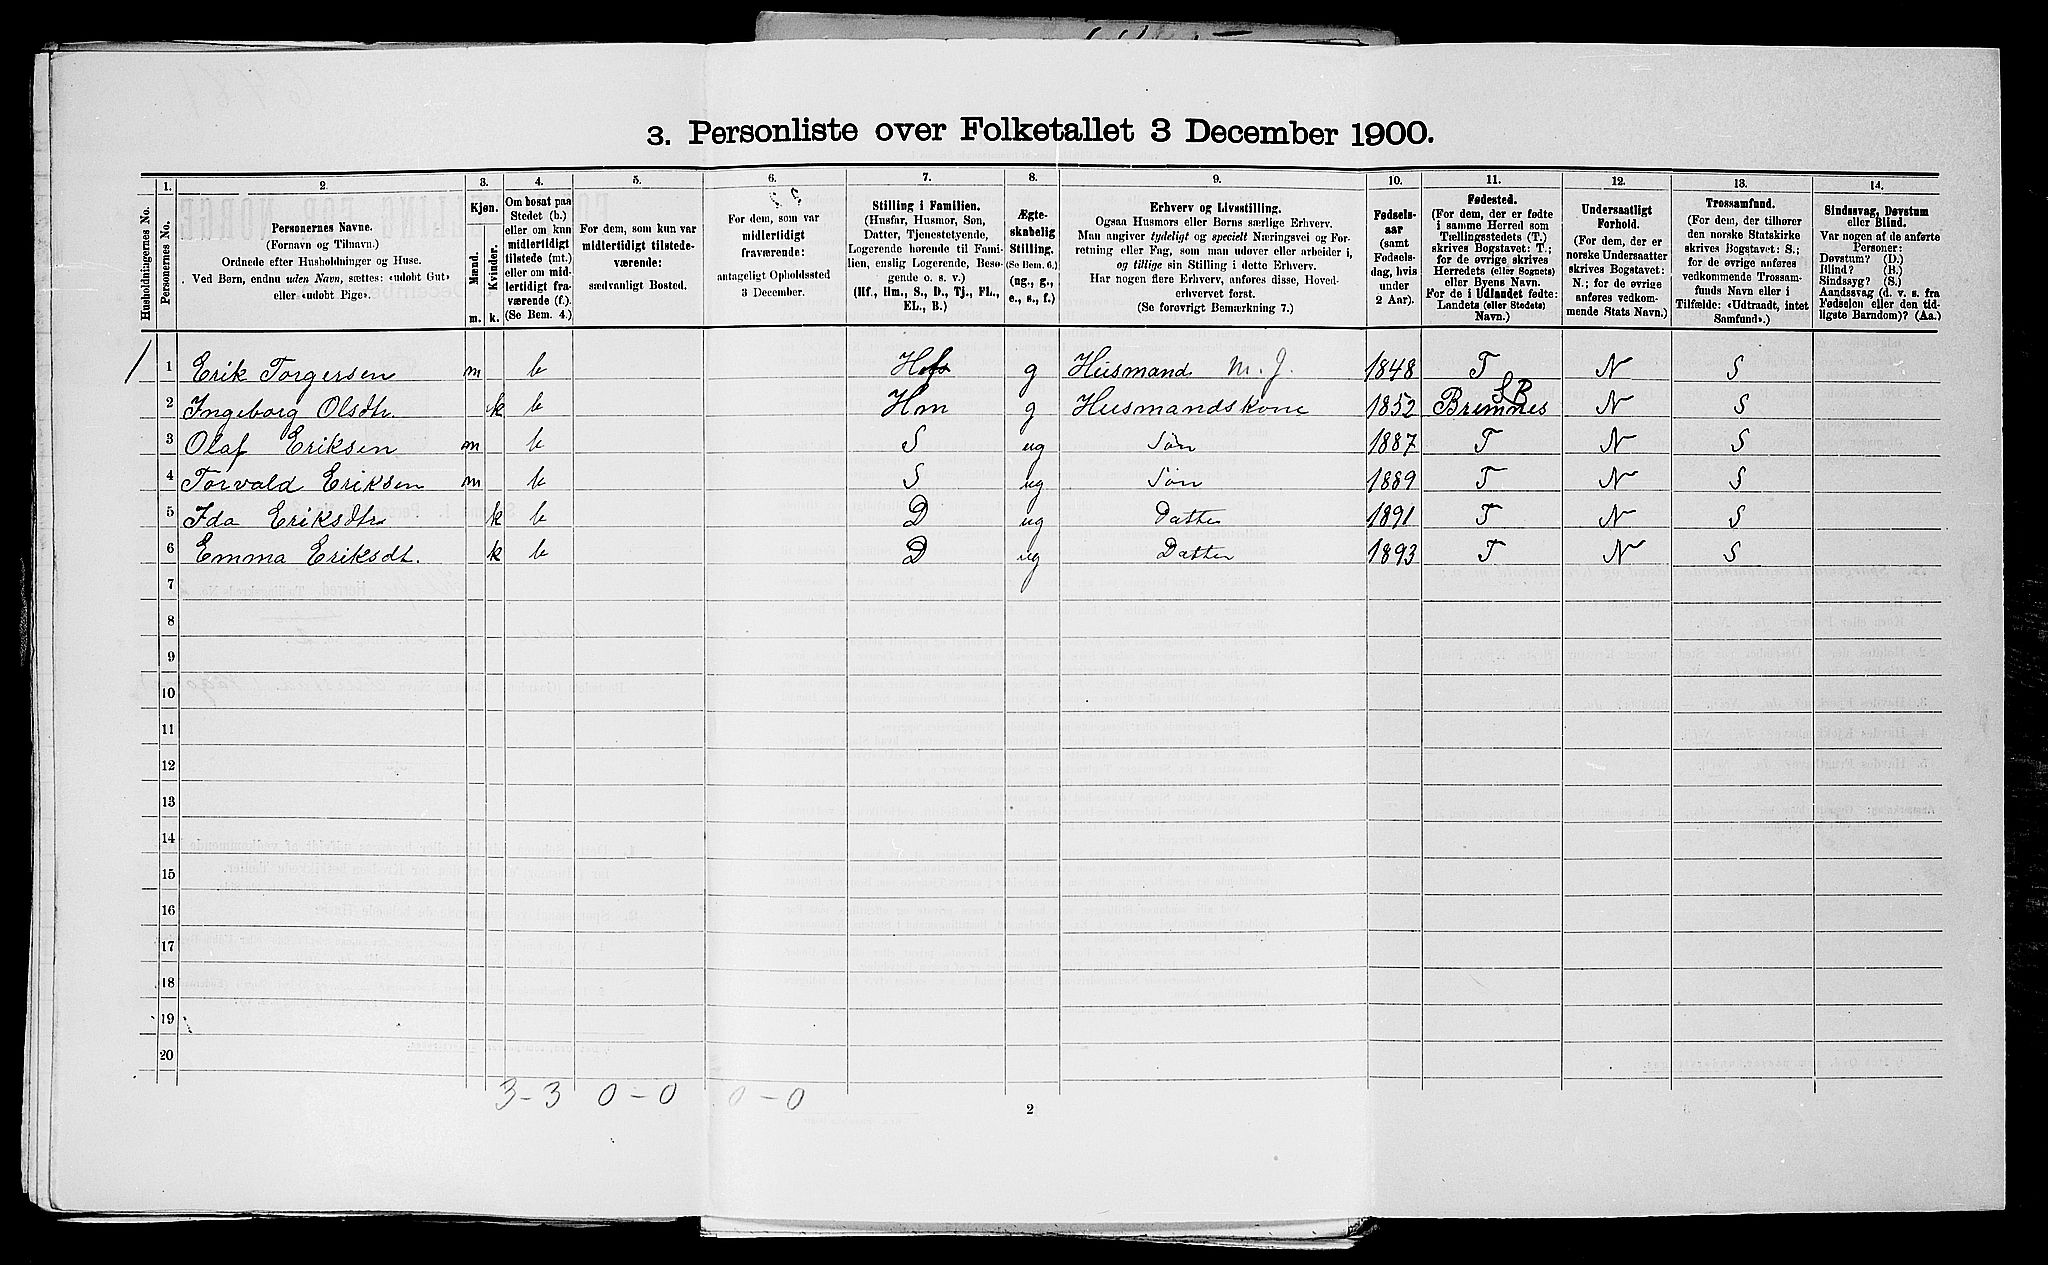 3. Personliste over Folketallet 3 December 1900.
Husholdningernes No.
1. Personernes No.
2. Personernes Navne.
(Fornavn og Tilnavn.)
Ordnede efter Husholdninger og Huse.
Ved Børn, endnu uden Navn, sættes: «udøbt Gut»
eller «udøbt Pige».
3. Kjøn.
Mænd. m.
Kvinder. k.
4. Om bosat paa
Stedet (b.)
eller om kun
midlertidigt
tilstede (mt.)
eller om mid-
lertidigt fra-
værende (f.).
(Se Bem. 4.)
5. For dem, som kun var
midlertidigt tilstede-
værende:
sædvanligt Bosted.
6. For dem, som var
midlertidigt
fraværende:
antageligt Opholdssted
3 December.
7. Stilling i Familien.
(Husfar, Husmor, Søn,
Datter, Tjenestetyende,
Logerende hørende til Fami-
lien, enslig Logerende, Besø-
gende o. s. v.)
(Hf., Hm., S., D., Tj., FL.,
EL., B.)
8. Ægte-
skabelig
Stilling.
(Se Bem. 6.)
(ug., g.,
e., s., f.)
9. Erhverv og Livsstilling.
Ogsaa Husmors eller Børns særlige Erhverv.
Man angiver tydeligt og specielt Næringsvei og For-
retning eller Fag, som man udøver eller arbeider i,
og tillige sin Stilling i dette Erhverv.
Har nogen flere Erhverv, anføres disse, Hoved-
erhvervet først.
(Se forøvrigt Bemærkning 7.)
10. Fødsels-
aar
(samt
Fødsels-
dag, hvis
under
2 Aar).
11. Fødested.
(For dem, der er fødte
i samme Herred som
Tællingsstedets (T.)
skrives Bogstavet: T.;
for de øvrige skrives
Herredets (eller Sognets)
eller Byens Navn.
For de i Udlandet fødte:
Landets (eller Stedets)
Navn.)
12. Undersaatligt
Forhold.
(For dem, der er
norske Undersaatter
skrives Bogstavet:
N.; for de øvrige
anføres vedkom-
mende Stats Navn.)
13. Trossamfund.
(For dem, der tilhører
den norske Statskirke
skrives Bogstavet: S.;
for de øvrige anføres
vedkommende Trossam-
funds Navn eller i
Tilfælde: «Udtraadt, intet
Samfund».)
14. Sindssvag, Døvstum
eller Blind.
Var nogen af de anførte
Personer:
Døvstum? (D.)
Blind? (B.)
Sindssyg? (S.)
Aandssvag (d. v. s. fra
Fødselen eller den tid-
ligste Barndom)? (Aa.)
1 1 Erik Torgersen m b Hf g Husmand M. J. 1848 T N S
2 Ingeborg Olsdtr. k b Hm g Husmandskone 1852 Bremnes SB N S
3 Olaf Eriksen m b S ug Søn 1887 T N S
4 Torvald Eriksen m b S ug Søn 1889 T N S
5 Ida Eriksdtr k b D ug Datter 1891 T N S
6 Emma Eriksdt. k b D ug Datter 1893 T N S
7
8
9
10
11
12
13
14
15
16
17
18
19
20
3-3 0-0 0-0
2